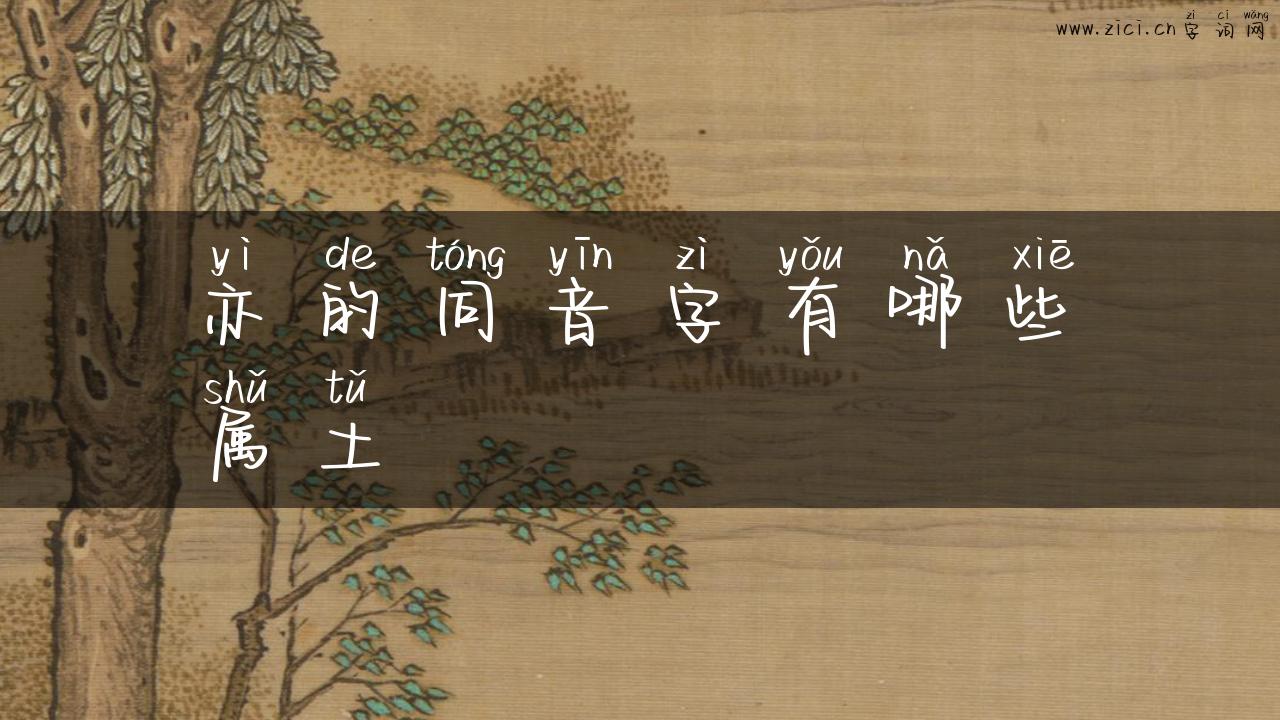 zì cí wǎng
www.zici.cn 字词网
yì de tóng yīn zì yǒu nǎ xiē
亦的同音字有哪些
shǔ tǔ
属土